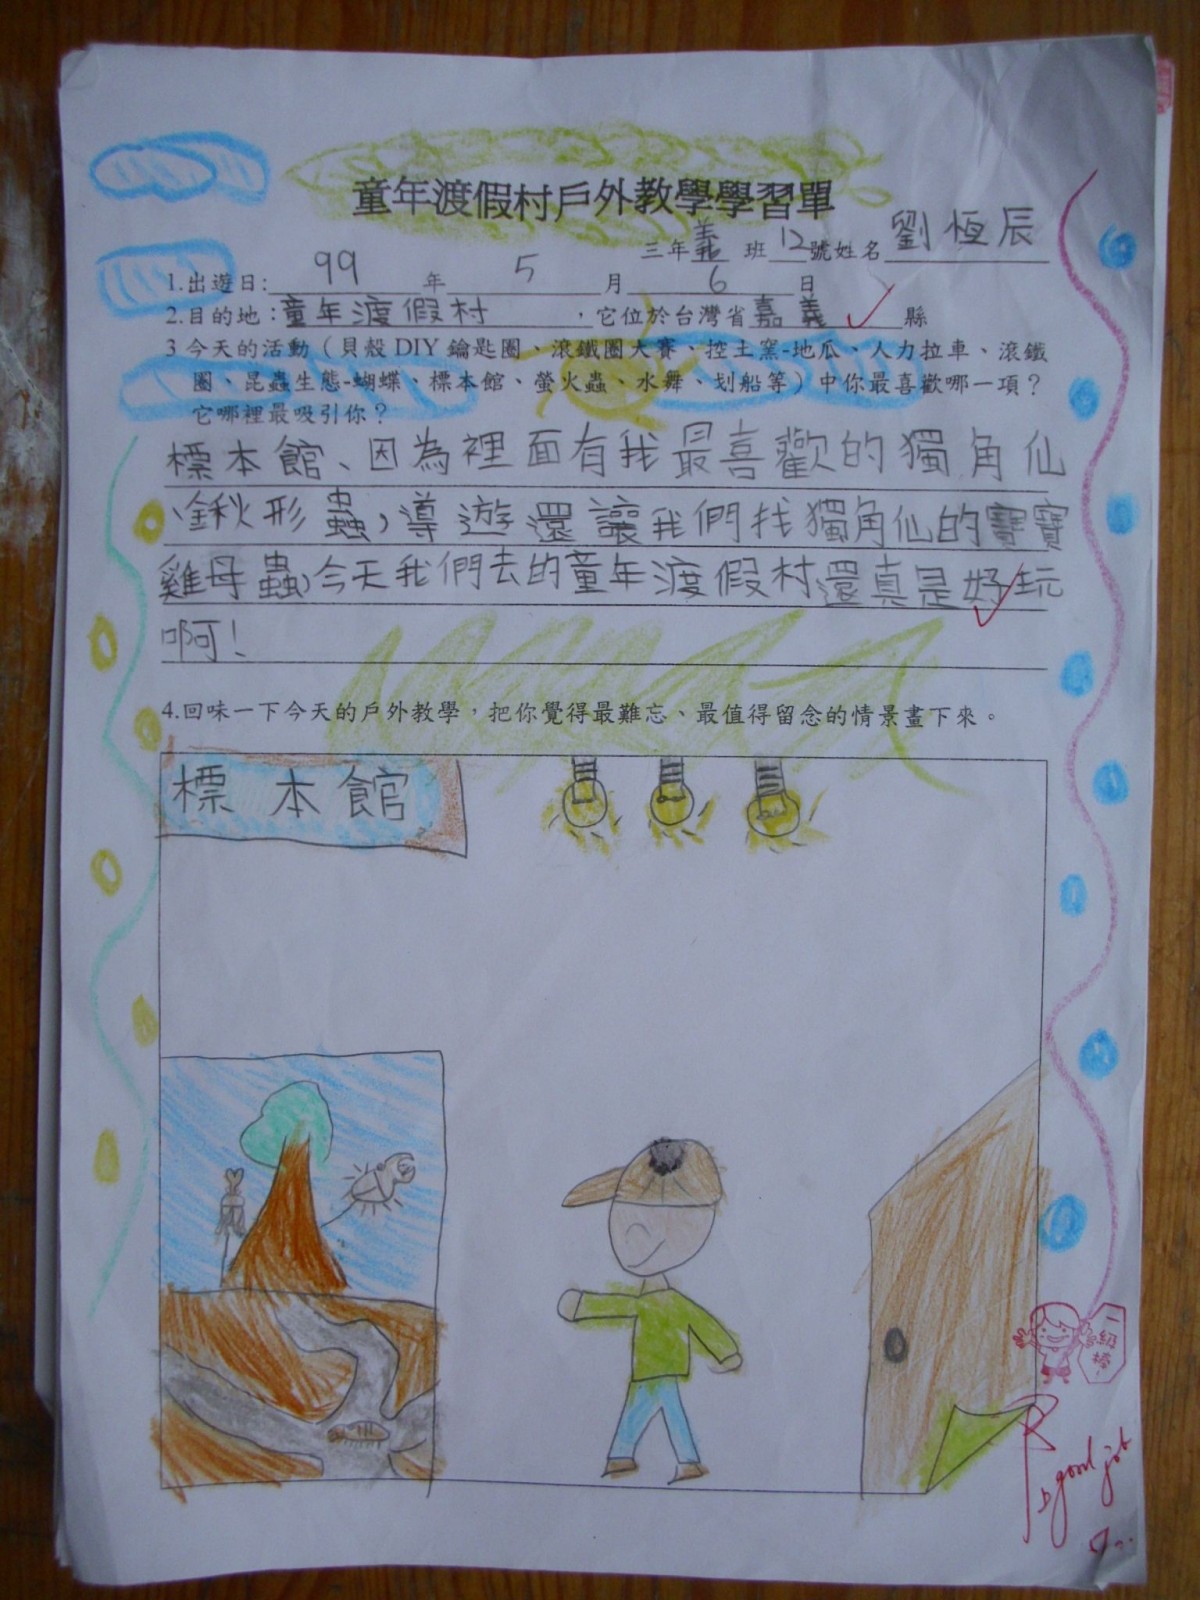 童年渡假村戶外教學學習單
三年義班12號姓名劉恆辰
1.出遊日:99年5月6日
2.目的地:童年渡假村,它位於台灣省嘉義縣
3 今天的活動(貝殼DIY鑰匙圈、滾鐵圈大賽、控土窯-地瓜、人力拉車、滾鐵
圈、昆蟲生態-蝴蝶、標本館、螢火蟲、水舞、划船等)中你最喜歡哪一項?
它哪裡最吸引你?
標本館、因為裡面有我最喜歡的獨角仙
、鍬形蟲,導遊還讓我們找獨角仙的寶寶
雞母蟲,今天我們去的童年渡假村還真是好玩
啊!
4.回味一下今天的戶外教學,把你覺得最難忘、最值得留念的情景畫下來。
標本館
一級棒
good job